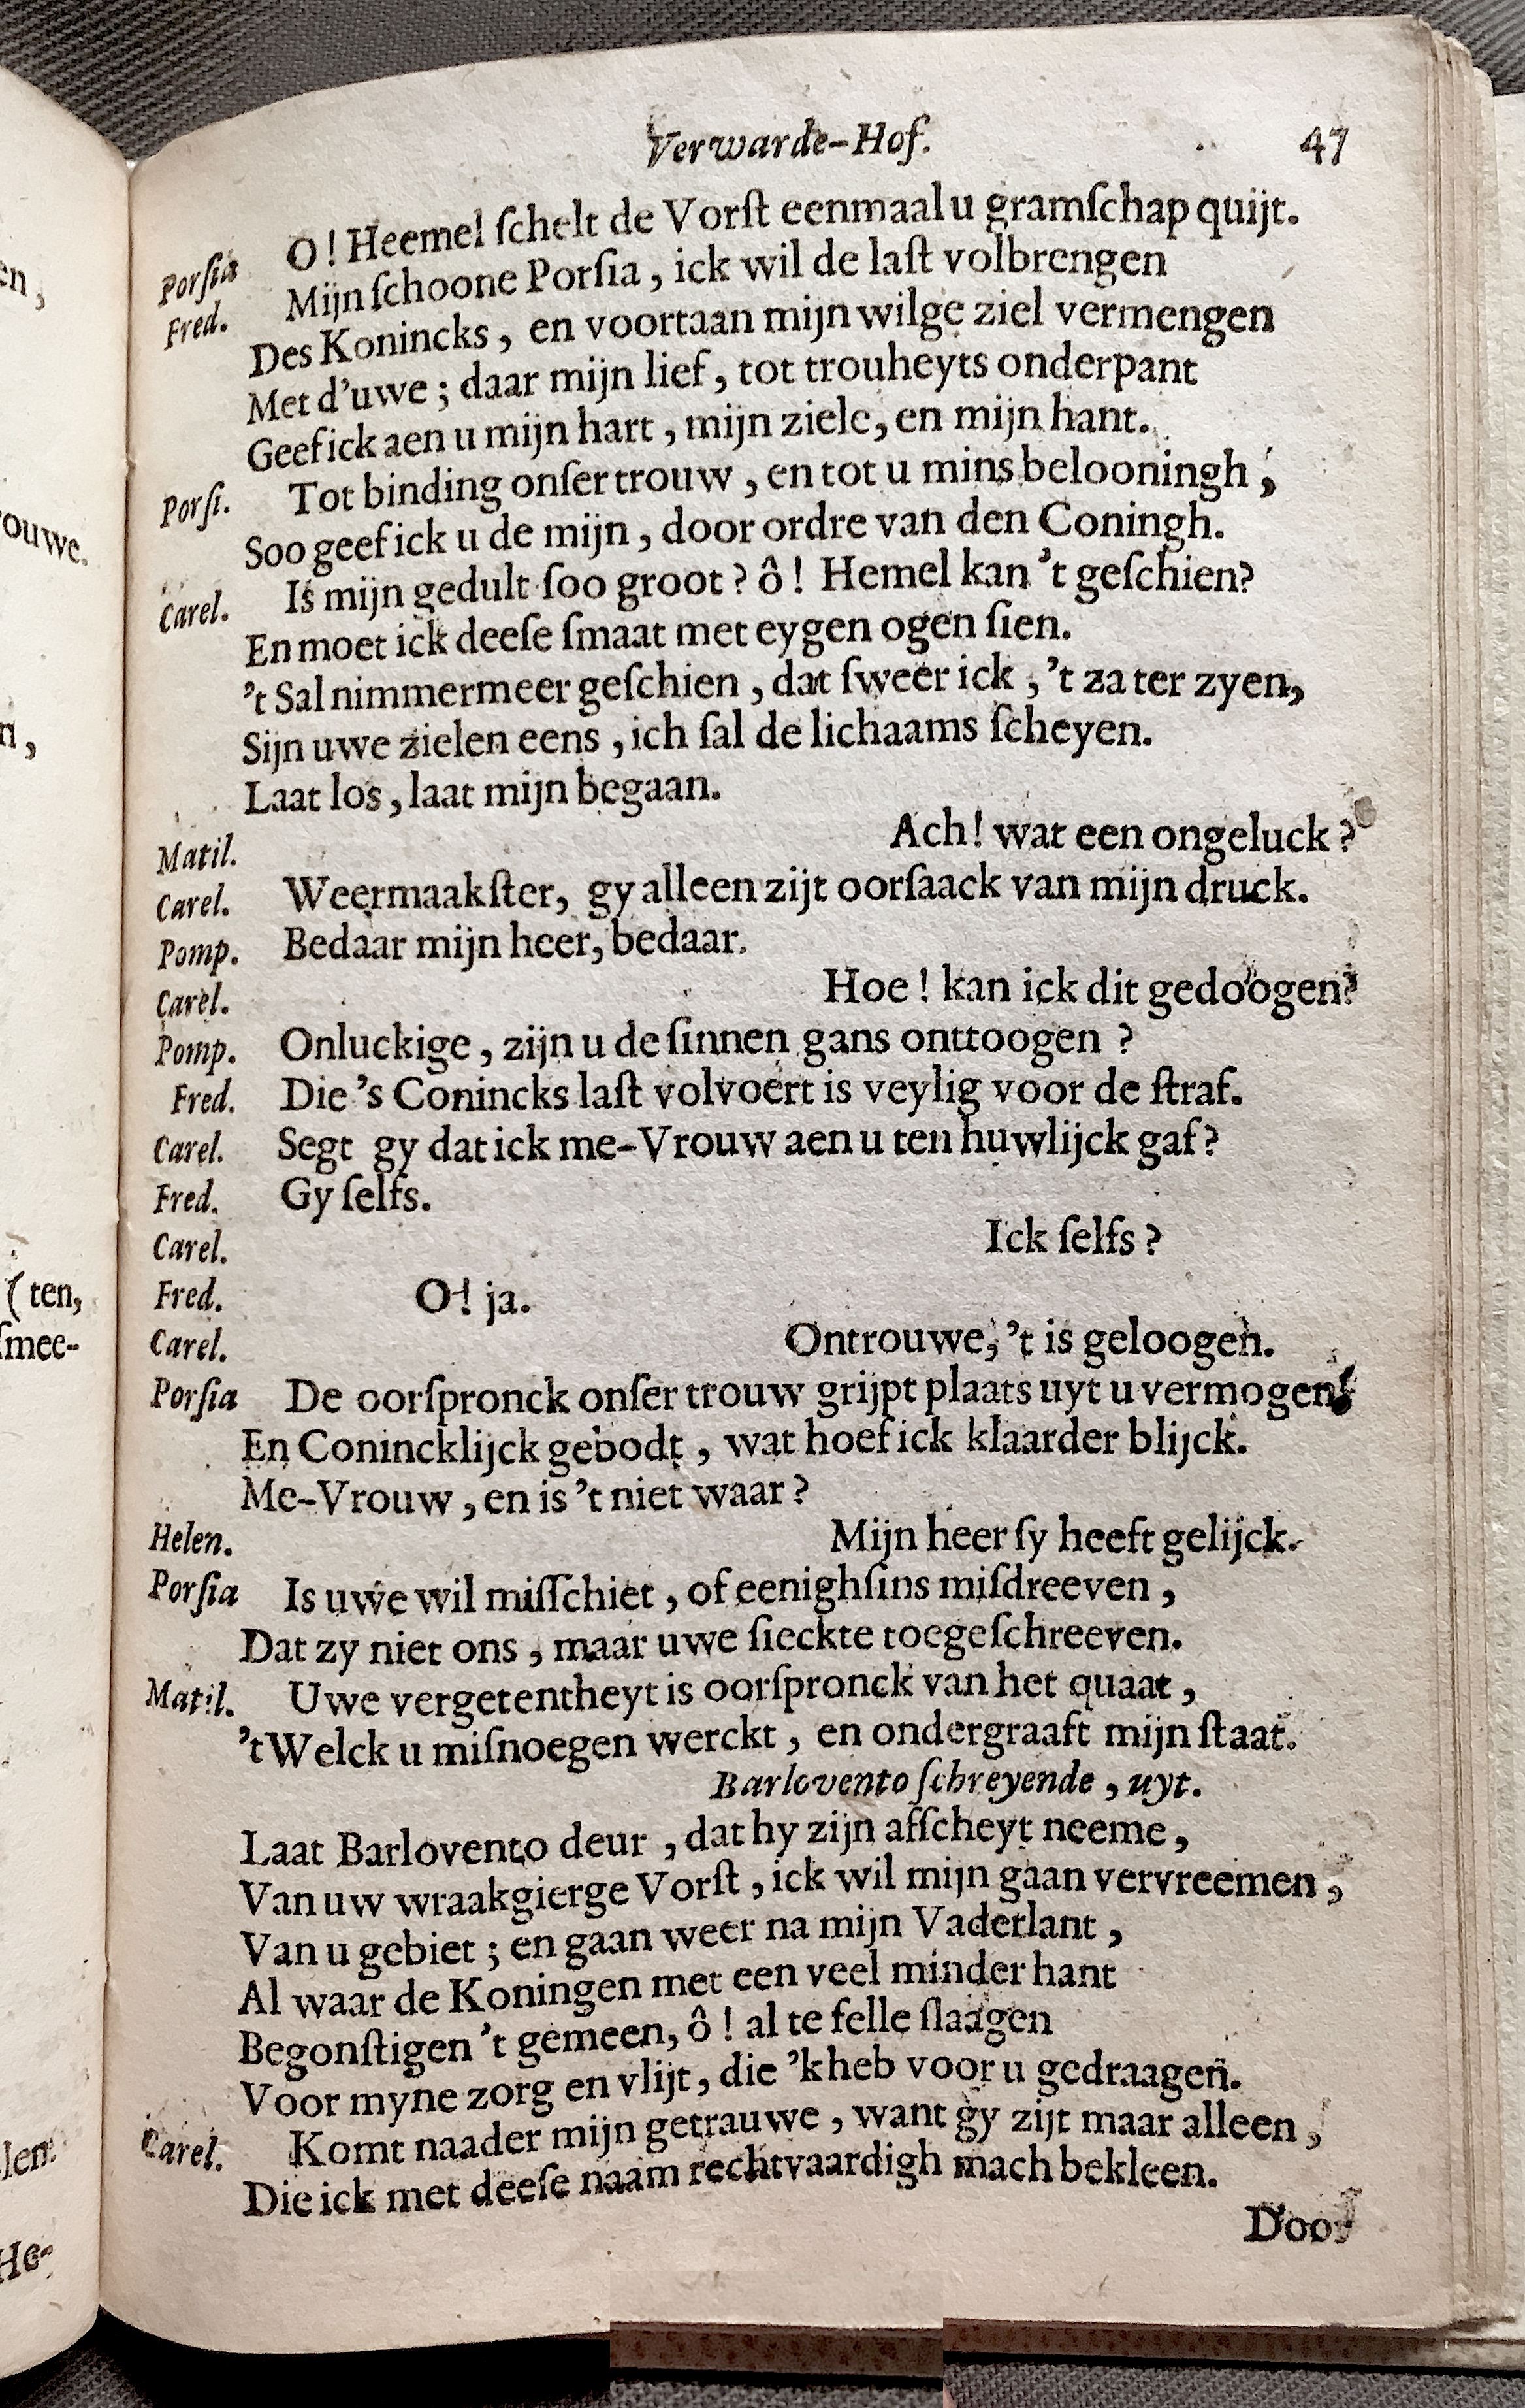 Verwarde-Hof. 47
Porſia O! Heemel ſchelt de Vorſt eenmaal u gramſchap quijt.
Fred. Mijn ſchoone Porſia, ick wil de laſt volbrengen
Des Konincks, en voortaan mijn wilge ziel vermengen
Met d'uwe; daar mijn lief, tot trouheyts onderpant
Geef ick aen u mijn hart, mijn ziele, en mijn hant.
Porſi. Tot binding onſer trouw, en tot u mins belooningh,
Soo geef ick u de mijn, door ordre van den Coningh.
Carel. Is mijn gedult ſoo groot? ô! Hemel kan 't geſchien?
En moet ick deeſe ſmaat met eygen ogen ſien.
't Sal nimmermeer geſchien, dat ſweer ick, 't za ter zyen,
Sijn uwe zielen eens, ich ſal de lichaams ſcheyen.
Laat los, laat mijn begaan.
Matil. Ach! wat een ongeluck?
Carel. Weermaakſter, gy alleen zijt oorſaack van mijn druck.
Pomp. Bedaar mijn heer, bedaar.
Carel. Hoe! kan ick dit gedoogen?
Pomp. Onluckige, zijn u de ſinnen gans onttoogen?
Fred. Die 's Conincks laſt volvoert is veylig voor de ſtraf.
Carel. Segt gy dat ick me-Vrouw aen u ten huwlijck gaf?
Fred. Gy ſelfs.
Carel. Ick ſelfs?
Fred. O! ja.
Carel. Ontrouwe, 't is geloogen.
Porſia De oorſpronck onſer trouw grijpt plaats uyt u vermogen
En Conincklijck gebodt, wat hoef ick klaarder blijck.
Me-Vrouw, en is 't niet waar?
Helen. Mijn heer ſy heeft gelijck.
Porſia Is uwe wil miſſchiet, of eenighſins miſdreeven,
Dat zy niet ons, maar uwe ſieckte toegeſchreeven.
Matil. Uwe vergetentheyt is oorſpronck van het quaat,
't Welck u miſnoegen werckt, en ondergraaft mijn ſtaat.
Barlovento ſchreyende, uyt.
Laat Barlovento deur, dat hy zijn afſcheyt neeme,
Van uw wraakgierge Vorſt, ick wil mijn gaan vervreemen,
Van u gebiet; en gaan weer na mijn Vaderlant,
Al waar de Koningen met een veel minder hant
Begonſtigen 't gemeen, ô! al te felle ſlaagen
Voor myne zorg en vlijt, die 'k heb voor u gedraagen.
Carel. Komt naader mijn getrauwe, want gy zijt maar alleen,
Die ick met deeſe naam rechtvaardigh mach bekleen.
Door
en,
ouwe.
n,
(ten,
ſmee-
len.
He-